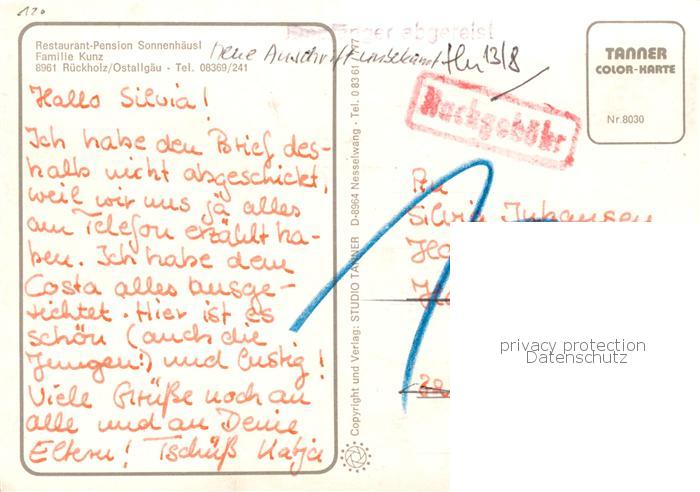 120
Empfänger abgereist
neue Anschrift unbekannt 13/8
Restaurant-Pension Sonnenhäusl
Familie Kunz
8961 Rückholz/Ostallgäu - Tel. 08369/241
Hallo Silvia!
Ich habe den Brief des-
halb nicht abgeschickt,
weil wir uns ja alles
am Telefon erzählt ha-
ben. Ich habe dem
Costa alles ausge-
richtet. Hier ist es
schön (auch die
Jungen!) und lustig!
Viele Grüße noch an
alle und an Deine
Eltern! Tschüß Katja
Copyright und Verlag: STUDIO TANNER D-8964 Nesselwang · Tel. 0 83 61
TANNER
COLOR-KARTE
Nr. 8030
Nachgebühr
An
Silvia
privacy protection
Datenschutz